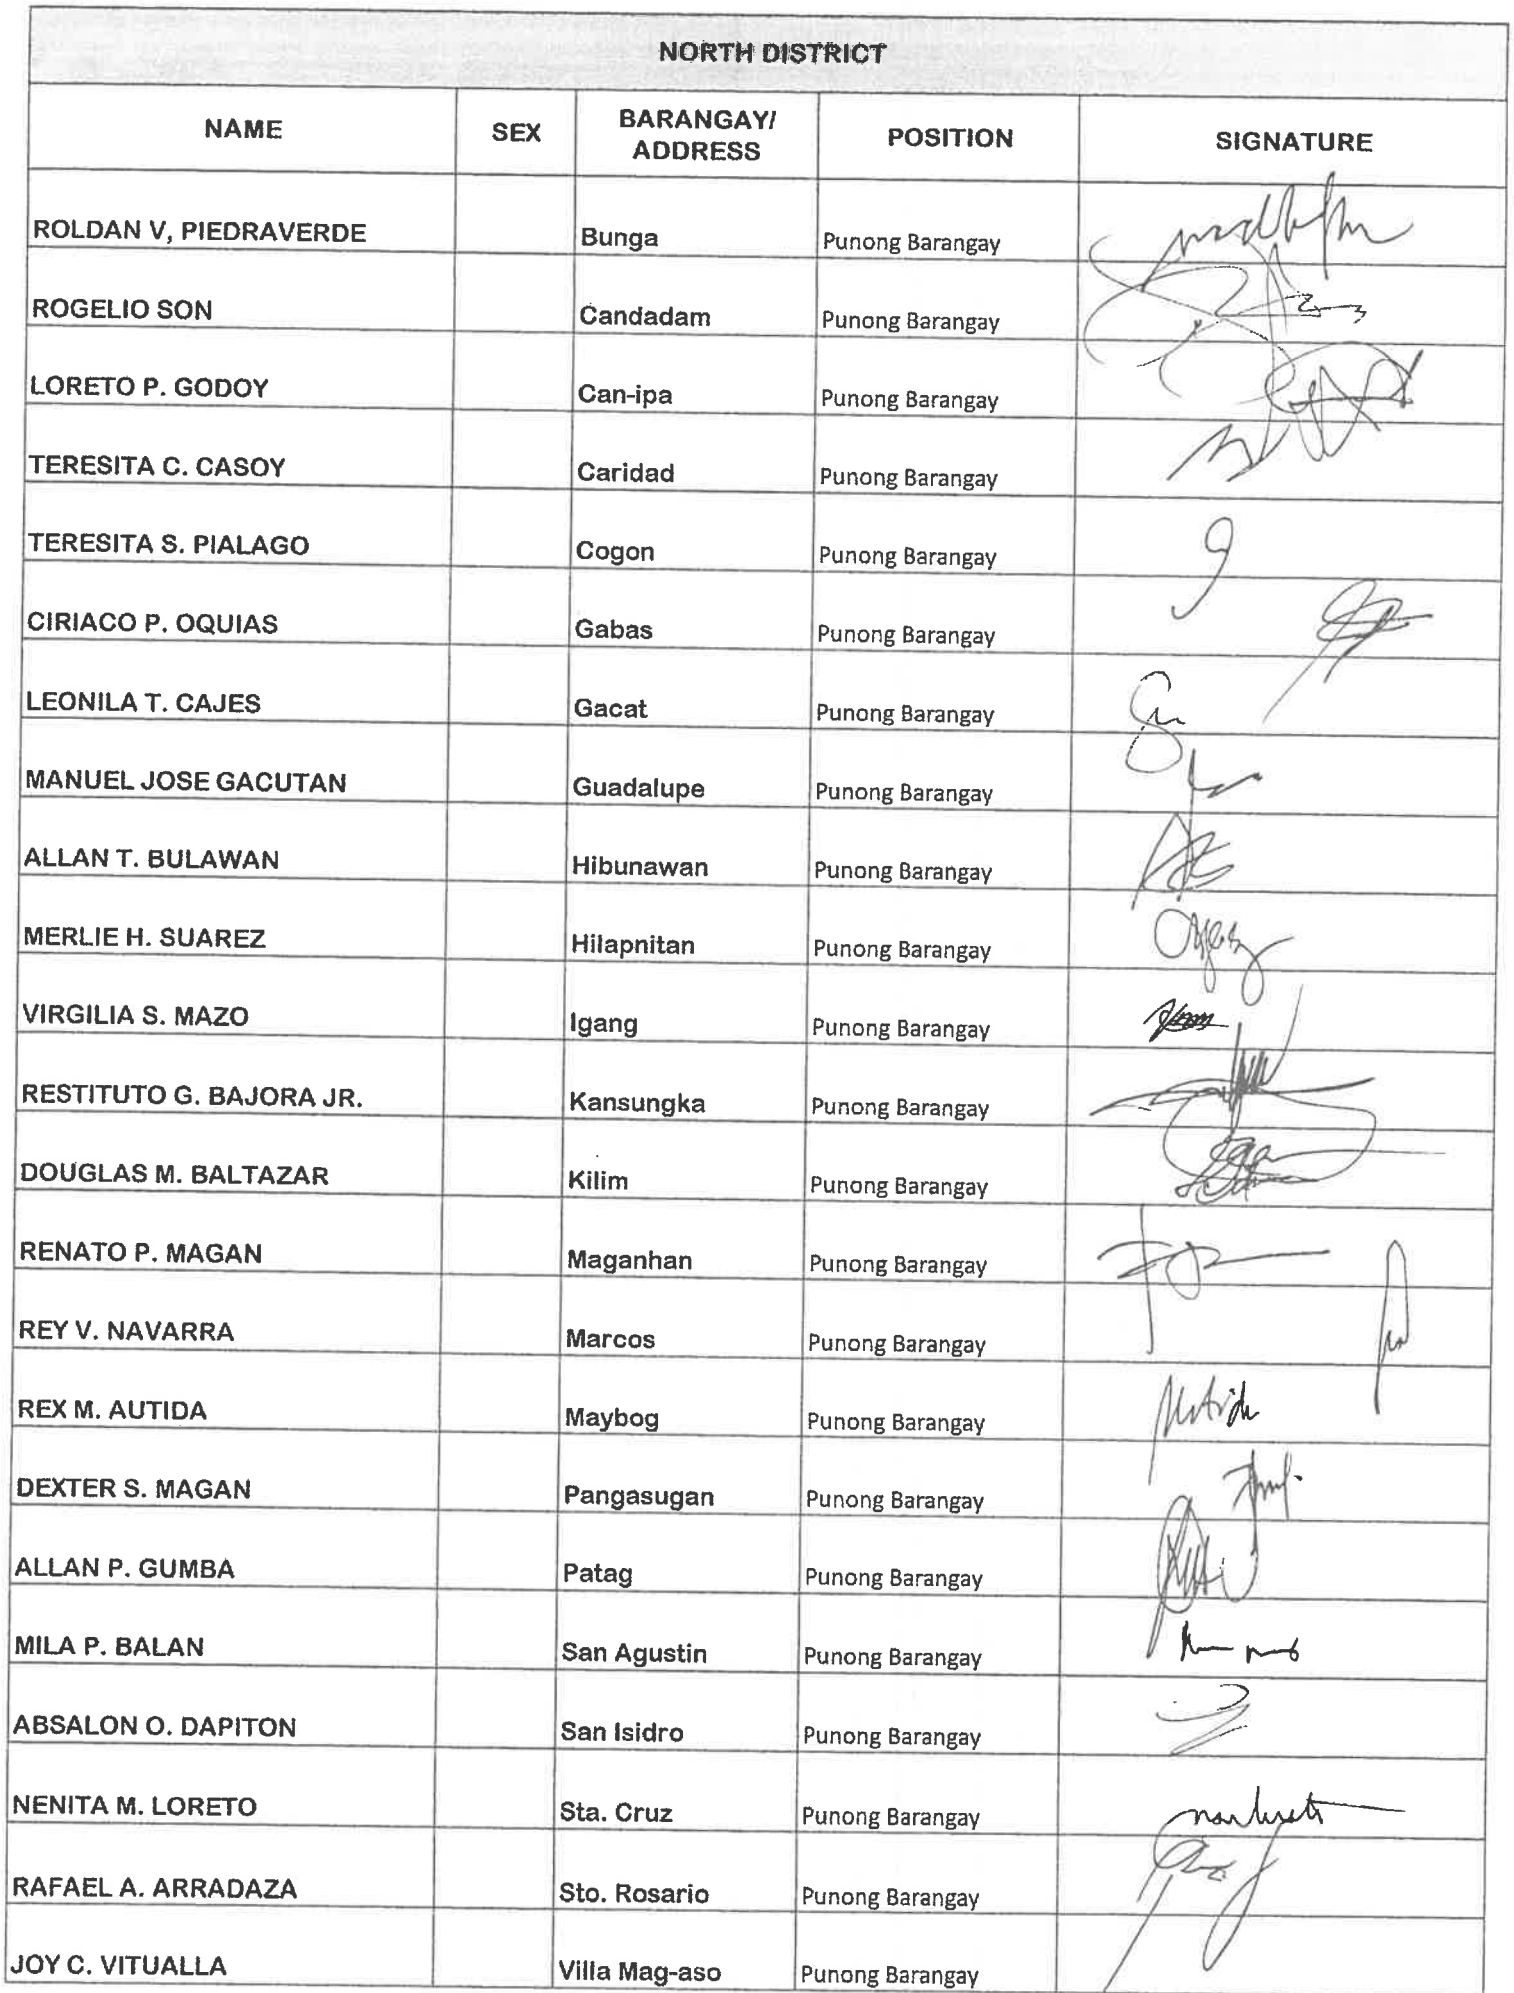 NORTH DISTRICT
NAME SEX BARANGAY/ ADDRESS POSITION SIGNATURE
ROLDAN V, PIEDRAVERDE Bunga Punong Barangay
ROGELIO SON Candadam Punong Barangay
LORETO P. GODOY Can-ipa Punong Barangay
TERESITA C. CASOY Caridad Punong Barangay
TERESITA S. PIALAGO Cogon Punong Barangay
CIRIACO P. OQUIAS Gabas Punong Barangay
LEONILA T. CAJES Gacat Punong Barangay
MANUEL JOSE GACUTAN Guadalupe Punong Barangay
ALLAN T. BULAWAN Hibunawan Punong Barangay
MERLIE H. SUAREZ Hilapnitan Punong Barangay
VIRGILIA S. MAZO Igang Punong Barangay
RESTITUTO G. BAJORA JR. Kansungka Punong Barangay
DOUGLAS M. BALTAZAR Kilim Punong Barangay
RENATO P. MAGAN Maganhan Punong Barangay
REY V. NAVARRA Marcos Punong Barangay
REX M. AUTIDA Maybog Punong Barangay
DEXTER S. MAGAN Pangasugan Punong Barangay
ALLAN P. GUMBA Patag Punong Barangay
MILA P. BALAN San Agustin Punong Barangay
ABSALON O. DAPITON San Isidro Punong Barangay
NENITA M. LORETO Sta. Cruz Punong Barangay
RAFAEL A. ARRADAZA Sto. Rosario Punong Barangay
JOY C. VITUALLA Villa Mag-aso Punong Barangay